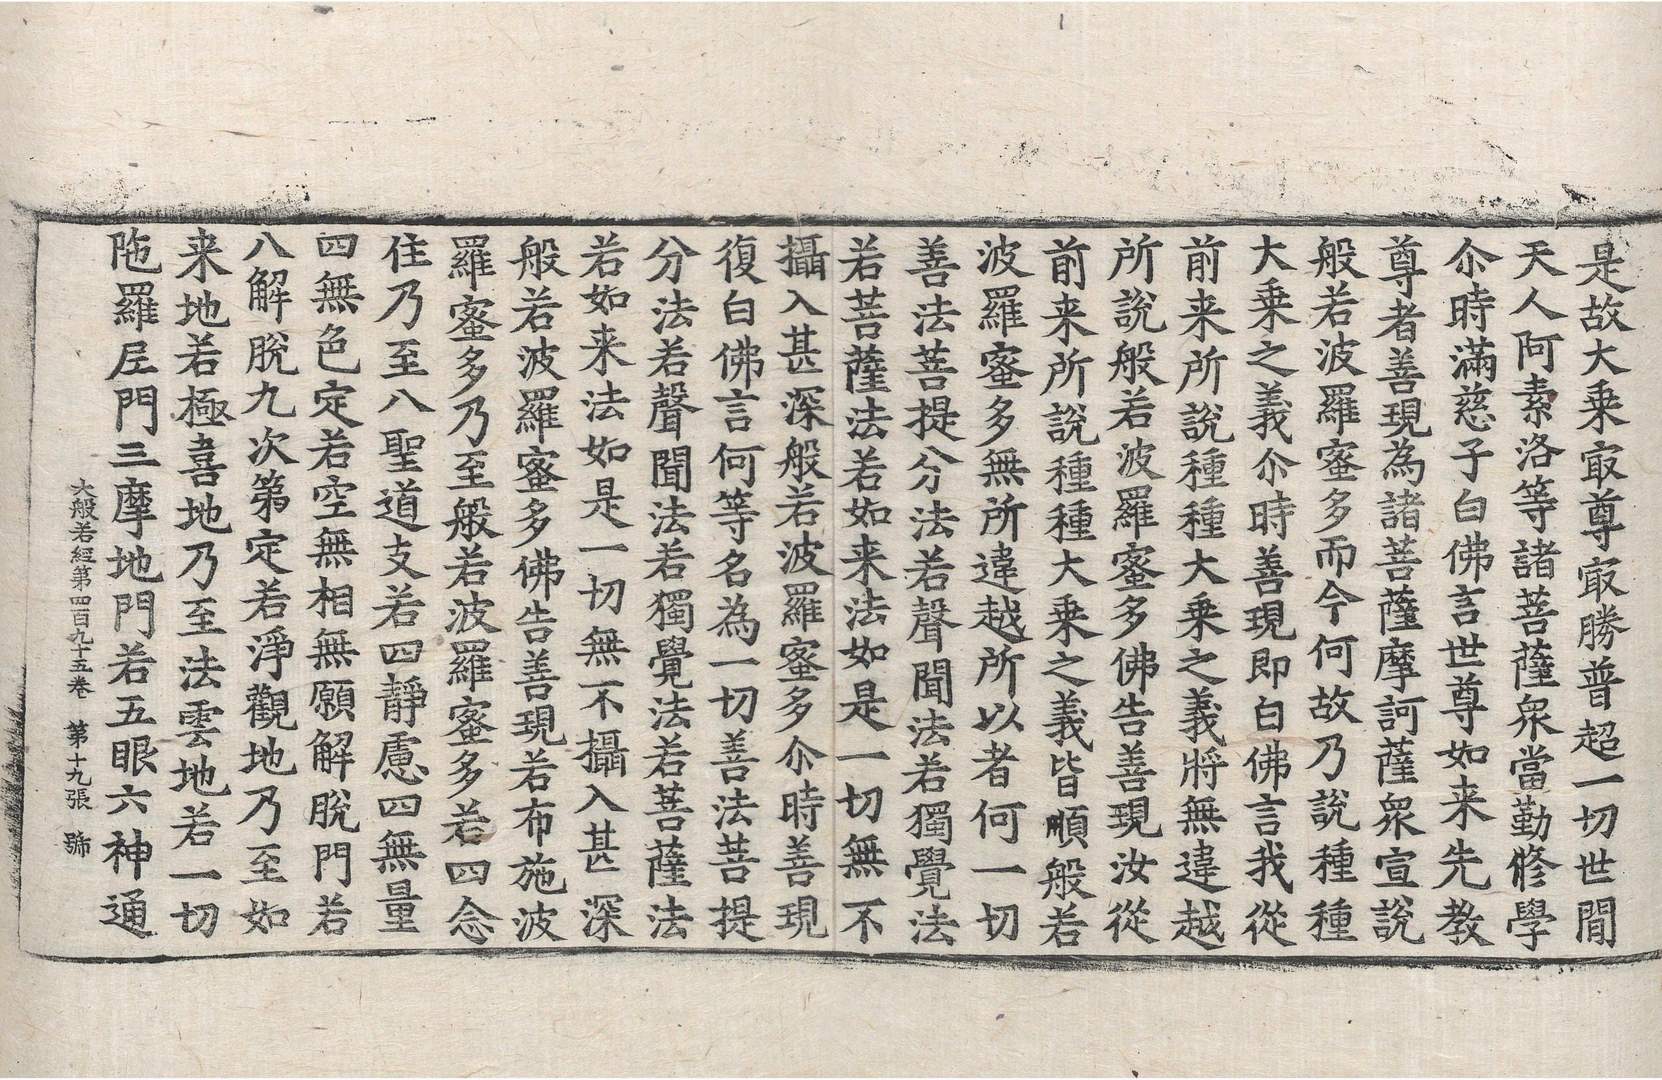 是故大乘㝡尊㝡勝普超一切世間
天人阿素洛等諸菩薩衆當勤修學
尒時滿慈子白佛言世尊如来先教
尊者善現為諸菩薩摩訶薩衆宣說
般若波羅蜜多而今何故乃說種種
大乘之義尒時善現即白佛言我從
前来所說種種大乘之義將無違越
所說般若波羅蜜多佛告善現汝從
前来所說種種大乘之義皆順般若
波羅蜜多無所違越所以者何一切
善法菩提分法若聲聞法若獨覺法
若菩薩法若如来法如是一切無不
攝入甚深般若波羅蜜多尒時善現
復白佛言何等名為一切善法菩提
分法若聲聞法若獨覺法若菩薩法
若如来法如是一切無不攝入甚深
般若波羅蜜多佛告善現若布施波
羅蜜多乃至般若波羅蜜多若四念
住乃至八聖道支若四靜慮四無量
四無色定若空無相無願解脫門若
八解脫九次第定若淨觀地乃至如
来地若極喜地乃至法雲地若一切
陁羅尼門三摩地門若五眼六神通
大般若經第四百九十五卷　第十九張　號